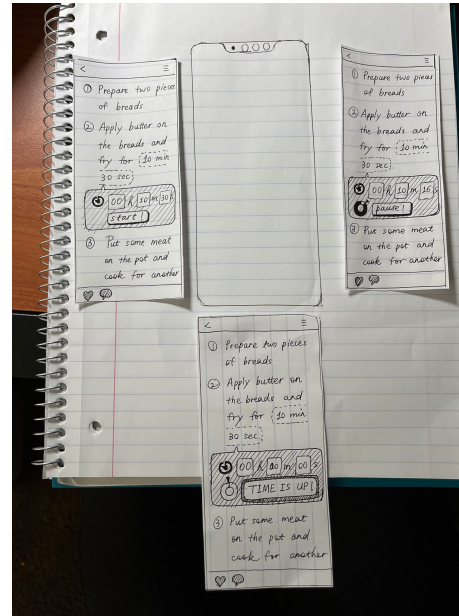 <
① Prepare two pieces
of breads
② Apply butter on
the breads and
fry for 10 min
30 sec
00 h 10 m 30 s
start!
③ Put some meat
on the pot and
cook for another
<
① Prepare two pieces
of breads
② Apply butter on
the breads and
fry for 10 min
30 sec
00 h 10 m 16 s
pause!
③ Put some meat
on the pot and
cook for another
<
① Prepare two pieces
of breads
② Apply butter on
the breads and
fry for 10 min
30 sec
00 h 00 m 00 s
TIME IS UP!
③ Put some meat
on the pot and
cook for another